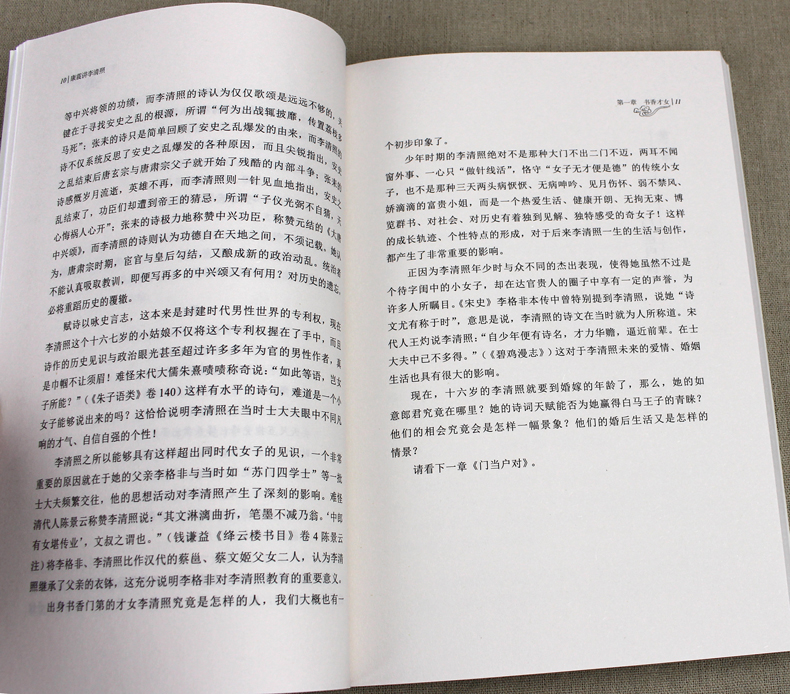 10 | 康震讲李清照
等中兴将领的功绩，而李清照的诗认为仅仅歌颂是远远不够的，关
键在于寻找安史之乱的根源，所谓“何为出战辄披靡，传置荔枝多
马死”；张耒的诗只是简单回顾了安史之乱爆发的由来，而李清照的
诗不仅系统反思了安史之乱爆发的各种原因，而且尖锐指出，安史
之乱结束后唐玄宗与唐肃宗父子就开始了残酷的内部斗争；张耒的
诗感慨岁月流逝，英雄不再，而李清照则一针见血地指出，安史之
乱结束了，功臣们却遭到帝王的猜忌，所谓“子仪光弼不自猜，天
心悔祸人心开”；张耒的诗极力地称赞中兴功臣，称赞元结的《大唐
中兴颂》，而李清照的诗则认为功德自在天地之间，不须记载，她认
为，唐肃宗时期，宦官与皇后勾结，又酿成新的政治动乱。统治者
不能认真吸取教训，即便写再多的中兴颂又有何用？对历史的遗忘，
必将重蹈历史的覆辙。
赋诗以咏史言志，这本来是封建时代男性世界的专利权，现在
李清照这个十六七岁的小姑娘不仅将这个专利权握在了手中，而且
诗作的历史见识与政治眼光甚至超过许多多年为官的男性作者，真
是巾帼不让须眉！难怪宋代大儒朱熹啧啧称奇说：“如此等语，岂女
子所能？”（《朱子语类》卷 140）这样有水平的诗句，难道是一个小
女子能够说出来的吗？这恰恰说明李清照在当时士大夫眼中不同凡
响的才气、自信自强的个性！
李清照之所以能够具有这样超出同时代女子的见识，一个非常
重要的原因就在于她的父亲李格非与当时如“苏门四学士”等一批
士大夫频繁交往，他的思想活动对李清照产生了深刻的影响。难怪
清代人陈景云称赞李清照说：“其文淋漓曲折，笔墨不减乃翁。‘中郎
有女堪传业’，文叔之谓也。”（钱谦益《绛云楼书目》卷 4 陈景云
注）将李格非、李清照比作汉代的蔡邕、蔡文姬父女二人，认为李清
照继承了父亲的衣钵，这充分说明李格非对李清照教育的重要意义，
出身书香门第的才女李清照究竟是怎样的人，我们大概也有一
第一章 书香才女 | 11
个初步印象了。
少年时期的李清照绝对不是那种大门不出二门不迈，两耳不闻
窗外事、一心只“做针线活”，恪守“女子无才便是德”的传统小女
子，也不是那种三天两头病恹恹、无病呻吟、见月伤怀、弱不禁风、
娇滴滴的富贵小姐，而是一个热爱生活、健康开朗、无拘无束、博
览群书、对社会、对历史有着独到见解、独特感受的奇女子！这样
的成长轨迹、个性特点的形成，对于后来李清照一生的生活与创作，
都产生了非常重要的影响。
正因为李清照年少时与众不同的杰出表现，使得她虽然不过是
个待字闺中的小女子，却在达官贵人的圈子中享有一定的声誉，为
许多人所瞩目。《宋史》李格非本传中曾特别提到李清照，说她“诗
文尤有称于时”，意思是说，李清照的诗文在当时就为人所称道。宋
代人王灼说李清照：“自少年便有诗名，才力华赡，逼近前辈。在士
大夫中已不多得。”（《碧鸡漫志》）这对于李清照未来的爱情、婚姻
生活也具有很大的影响。
现在，十六岁的李清照就要到婚嫁的年龄了，那么，她的如
意郎君究竟在哪里？她的诗词天赋能否为她赢得白马王子的青睐？
他们的相会究竟会是怎样一幅景象？他们的婚后生活又是怎样的
情景？
请看下一章《门当户对》。